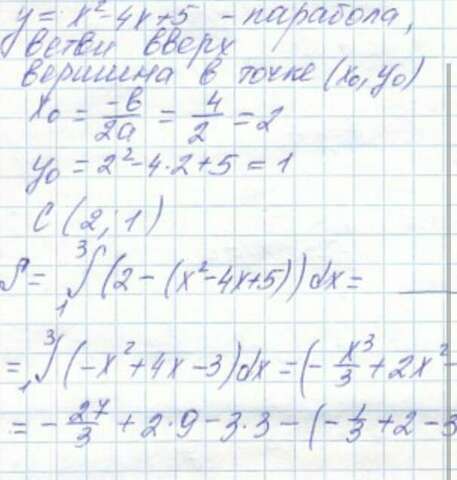 y = x² - 4x + 5 - парабола,
ветви вверх
вершина в точке (x₀, y₀)
x₀ = -в/2a = 4/2 = 2
y₀ = 2² - 4·2 + 5 = 1
C (2; 1)
S = ₁∫³ (2 - (x² - 4x + 5)) dx =
= ₁∫³ (-x² + 4x - 3) dx = (- x³/3 + 2x² -
= - 27/3 + 2·9 - 3·3 - (- 1/3 + 2 - 3